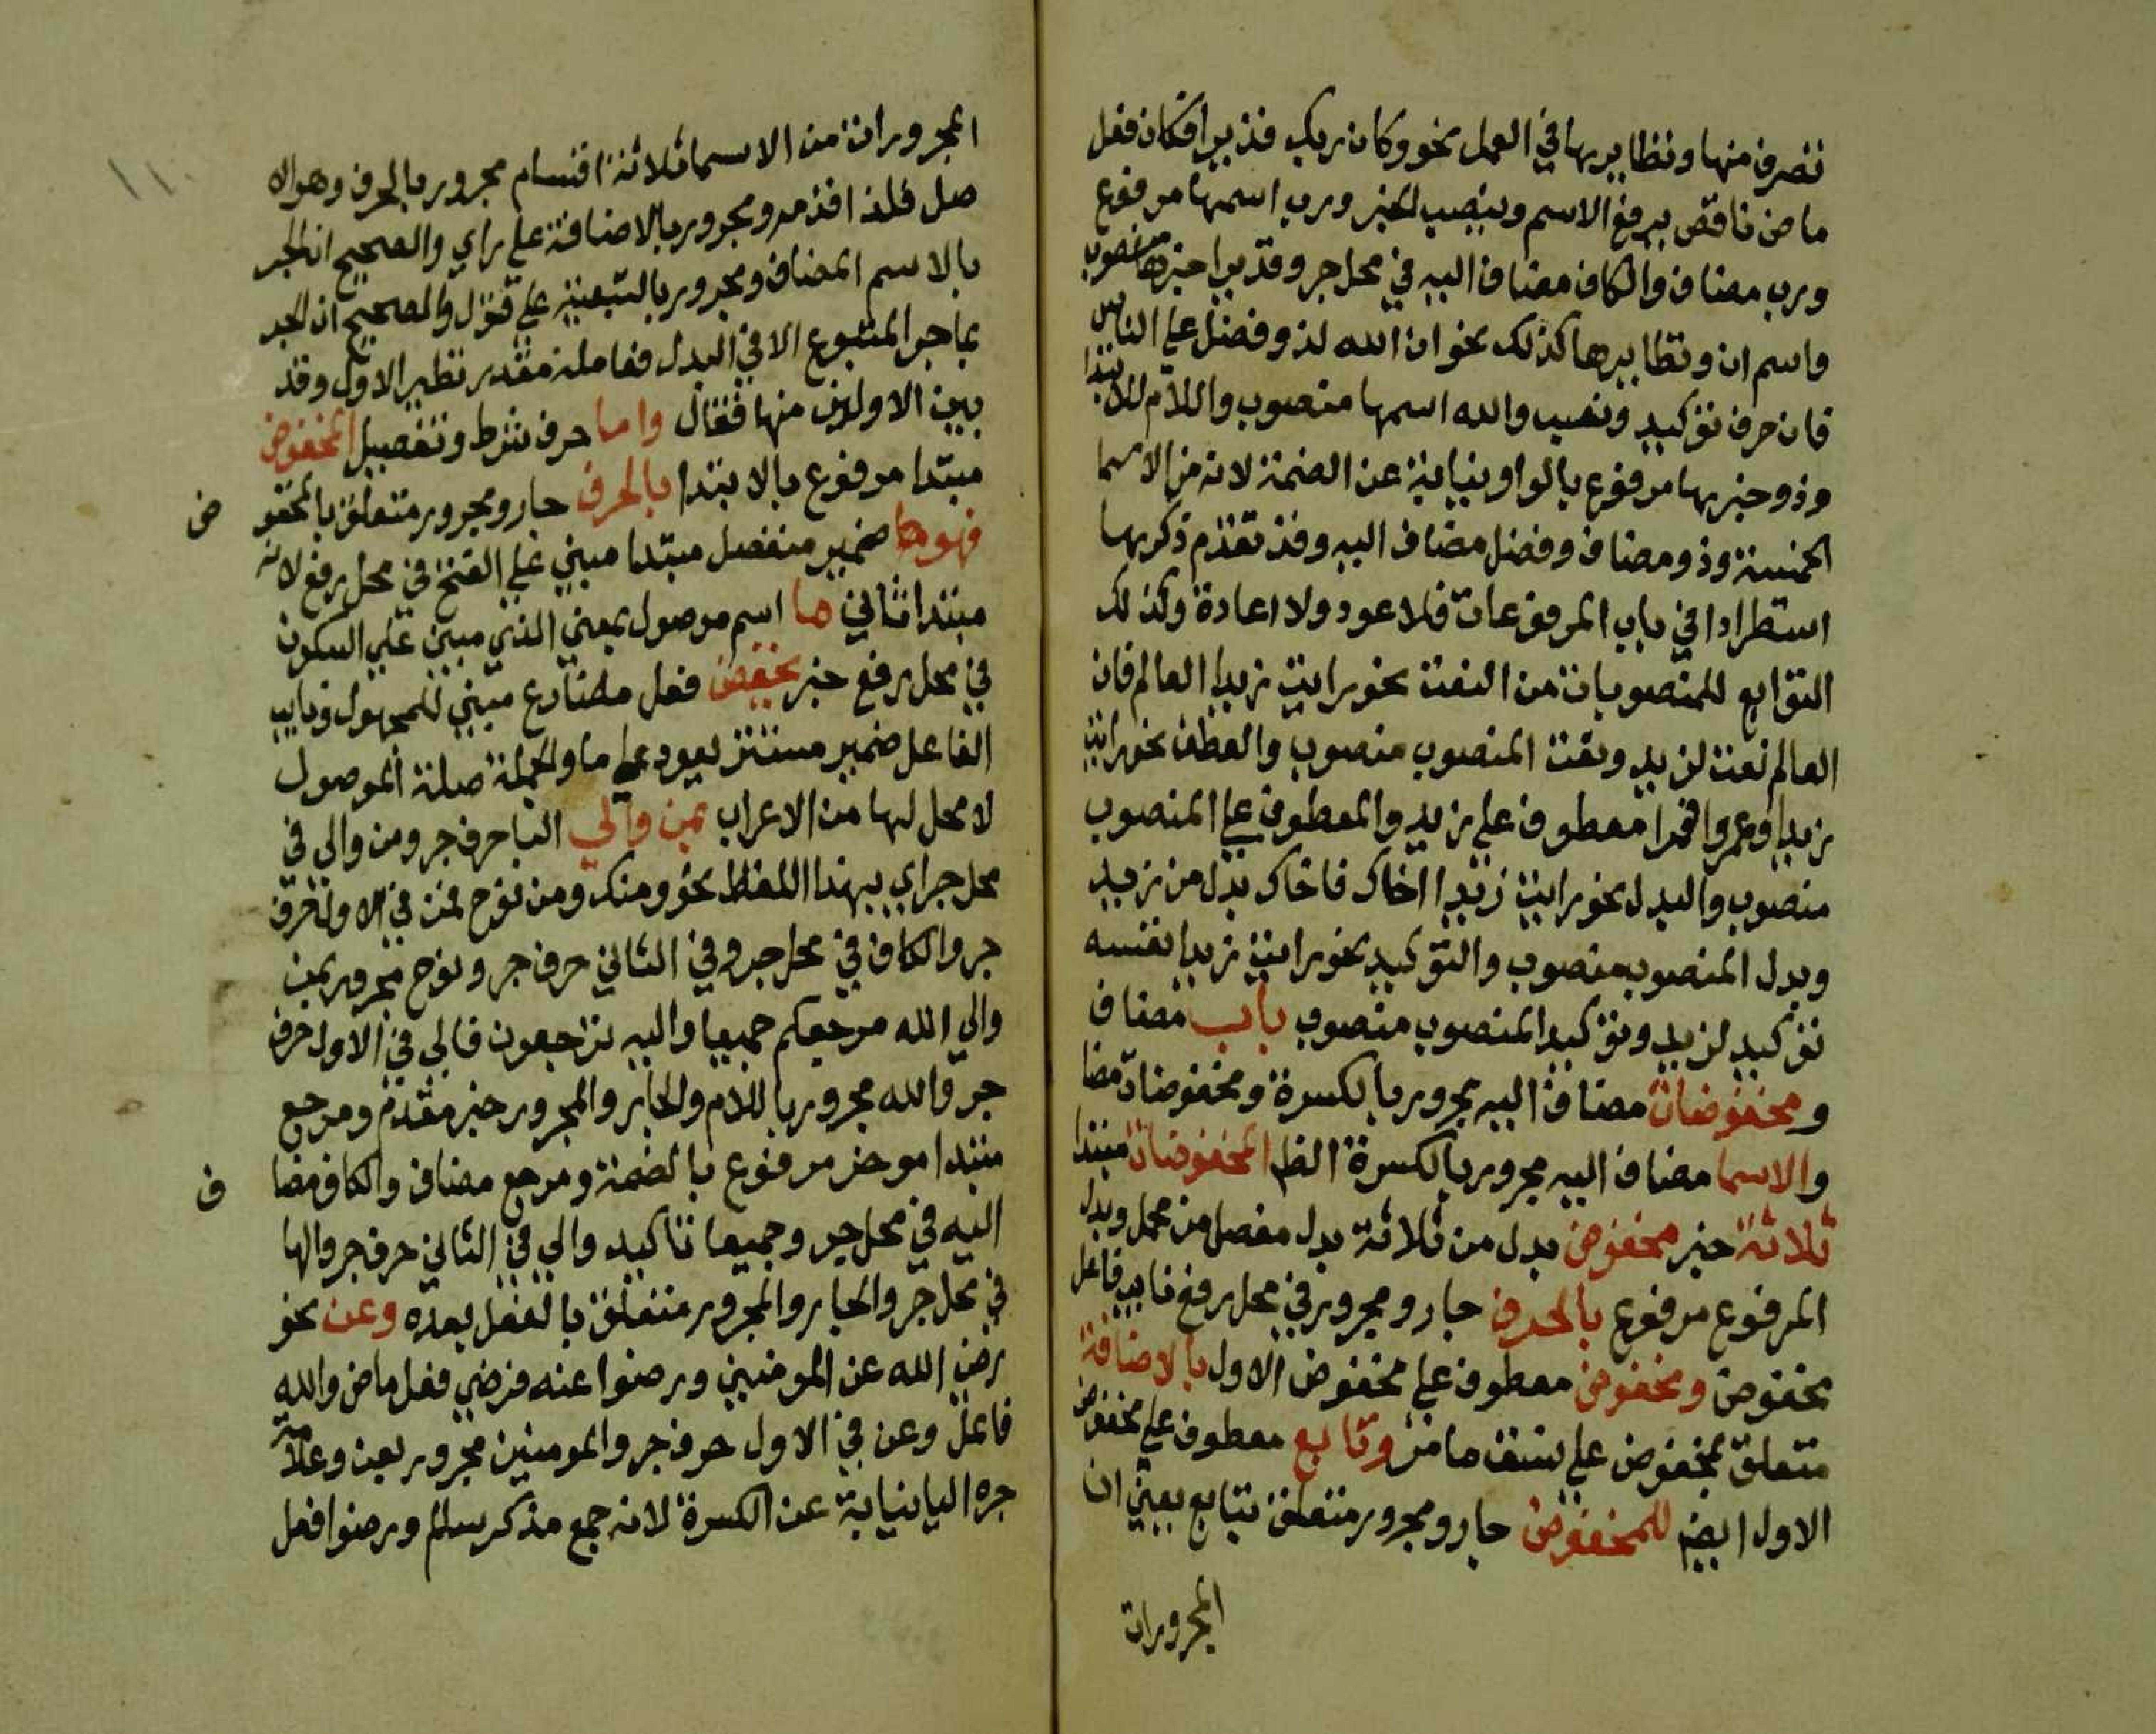 تصرف منها ونظايرها في العمل نحو وكان ربك قديرا فكان فعل
ماض ناقص يرفع الاسم وينصب الخبر ورب اسمها مرفوع
ورب مضاف والكاف مضاف اليه في محل جر وقديرا خبرها منصوب
واسم ان ونظايرها كذلك نحو ان الله لذو فضل علي الناس
فان حرف توكيد ونصب والله اسمها منصوب واللام للابتدا
وذو خبرها مرفوع بالواو نيابة عن الضمة لانه من الاسما
الخمسة وذو مضاف وفضل مضاف اليه وقد تقدم ذكرها
استطرادا في باب المرفوعات فلا عود ولا اعادة وكذلك
التوابع للمنصوبات من النعت نحو رايت زيدا العالم فان
العالم نعت لزيد ونعت المنصوب منصوب والعطف نحو رايت
زيدا وعمروا فعمرا معطوف علي زيد والمعطوف علي المنصوب
منصوب والبدل نحو رايت زيدا اخاك فاخاك بدل من زيد
وبدل المنصوب منصوب والتوكيد نحو رايت زيدا نفسه
توكيد لزيد وتوكيد المنصوب منصوب باب مضاف
ومخفوضات مضاف اليه مجرور بالكسرة ومخفوضات مضا
والاسما مضاف اليه مجرور بالكسرة الظ المخفوضات مبتدا
ثلاثة خبر مخفوض بدل من ثلاثة بدل مفصل من مجمل وبدل
المرفوع مرفوع بالحرف جار ومجرور في محل رفع نايب فاعل
مخفوض ومخفوض معطوف علي مخفوض الاول بالاضافة
متعلق بمخفوض علي نسق ما مر وتابع معطوف علي مخفوض
الاول ايض للمخفوض جار ومجرور متعلق بتابع يعني ان
المجرورات
١١٠
المجرورات من الاسما ثلاثة اقسام مجرور بالحرف وهو الا
صل فلذا قدمه ومجرور بالاضافة علي راي والصحيح ان الجر
بالاسم المضاف ومجرور بالتبعية علي قول والصحيح ان الجر
بما جر المتبوع الا في البدل فعامله مقدر نظير الاول وقد
بين الاولين منها فقال واما حرف شرط وتفصيل المخفوض
مبتدا مرفوع بالابتدا بالحرف جار ومجرور متعلق بالمخفو
ض
فهو ها ضمير منفصل مبتدا مبني علي الفتح في محل رفع لانه
مبتدا ثاني ما اسم موصول بمعني الذي مبني علي السكون
في محل رفع خبر يخفض فعل مضارع مبني للمجهول ونايب
الفاعل ضمير مستتر يعود علي ما والجملة صلة الموصول
لا محل لها من الاعراب بمن والي البا حرف جر ومن والي في
محل جر اي بهذا اللفظ نحو ومنك ومن نوح فمن في الاول حرف
جر والكاف في محل جر وفي الثاني حرف جر ونوح مجرور بمن
والي الله مرجعكم جميعا واليه ترجعون فالي في الاول حرف
جر والله مجرور باللام والجار والمجرور خبر مقدم ومرجع
مبتدا موخر مرفوع بالضمة ومرجع مضاف والكاف مضا
ف
اليه في محل جر وجميعا تاكيد والي في الثاني حرف جر والها
في محل جر والجار والمجرور متعلق بالفعل بعده وعن نحو
رضي الله عن المومنين ورضوا عنه فرضي فعل ماض والله
فاعل وعن في الاول حرف جر والمومنين مجرور بعن وعلامة
جره اليا نيابة عن الكسرة لانه جمع مذكر سالم ورضوا فعل